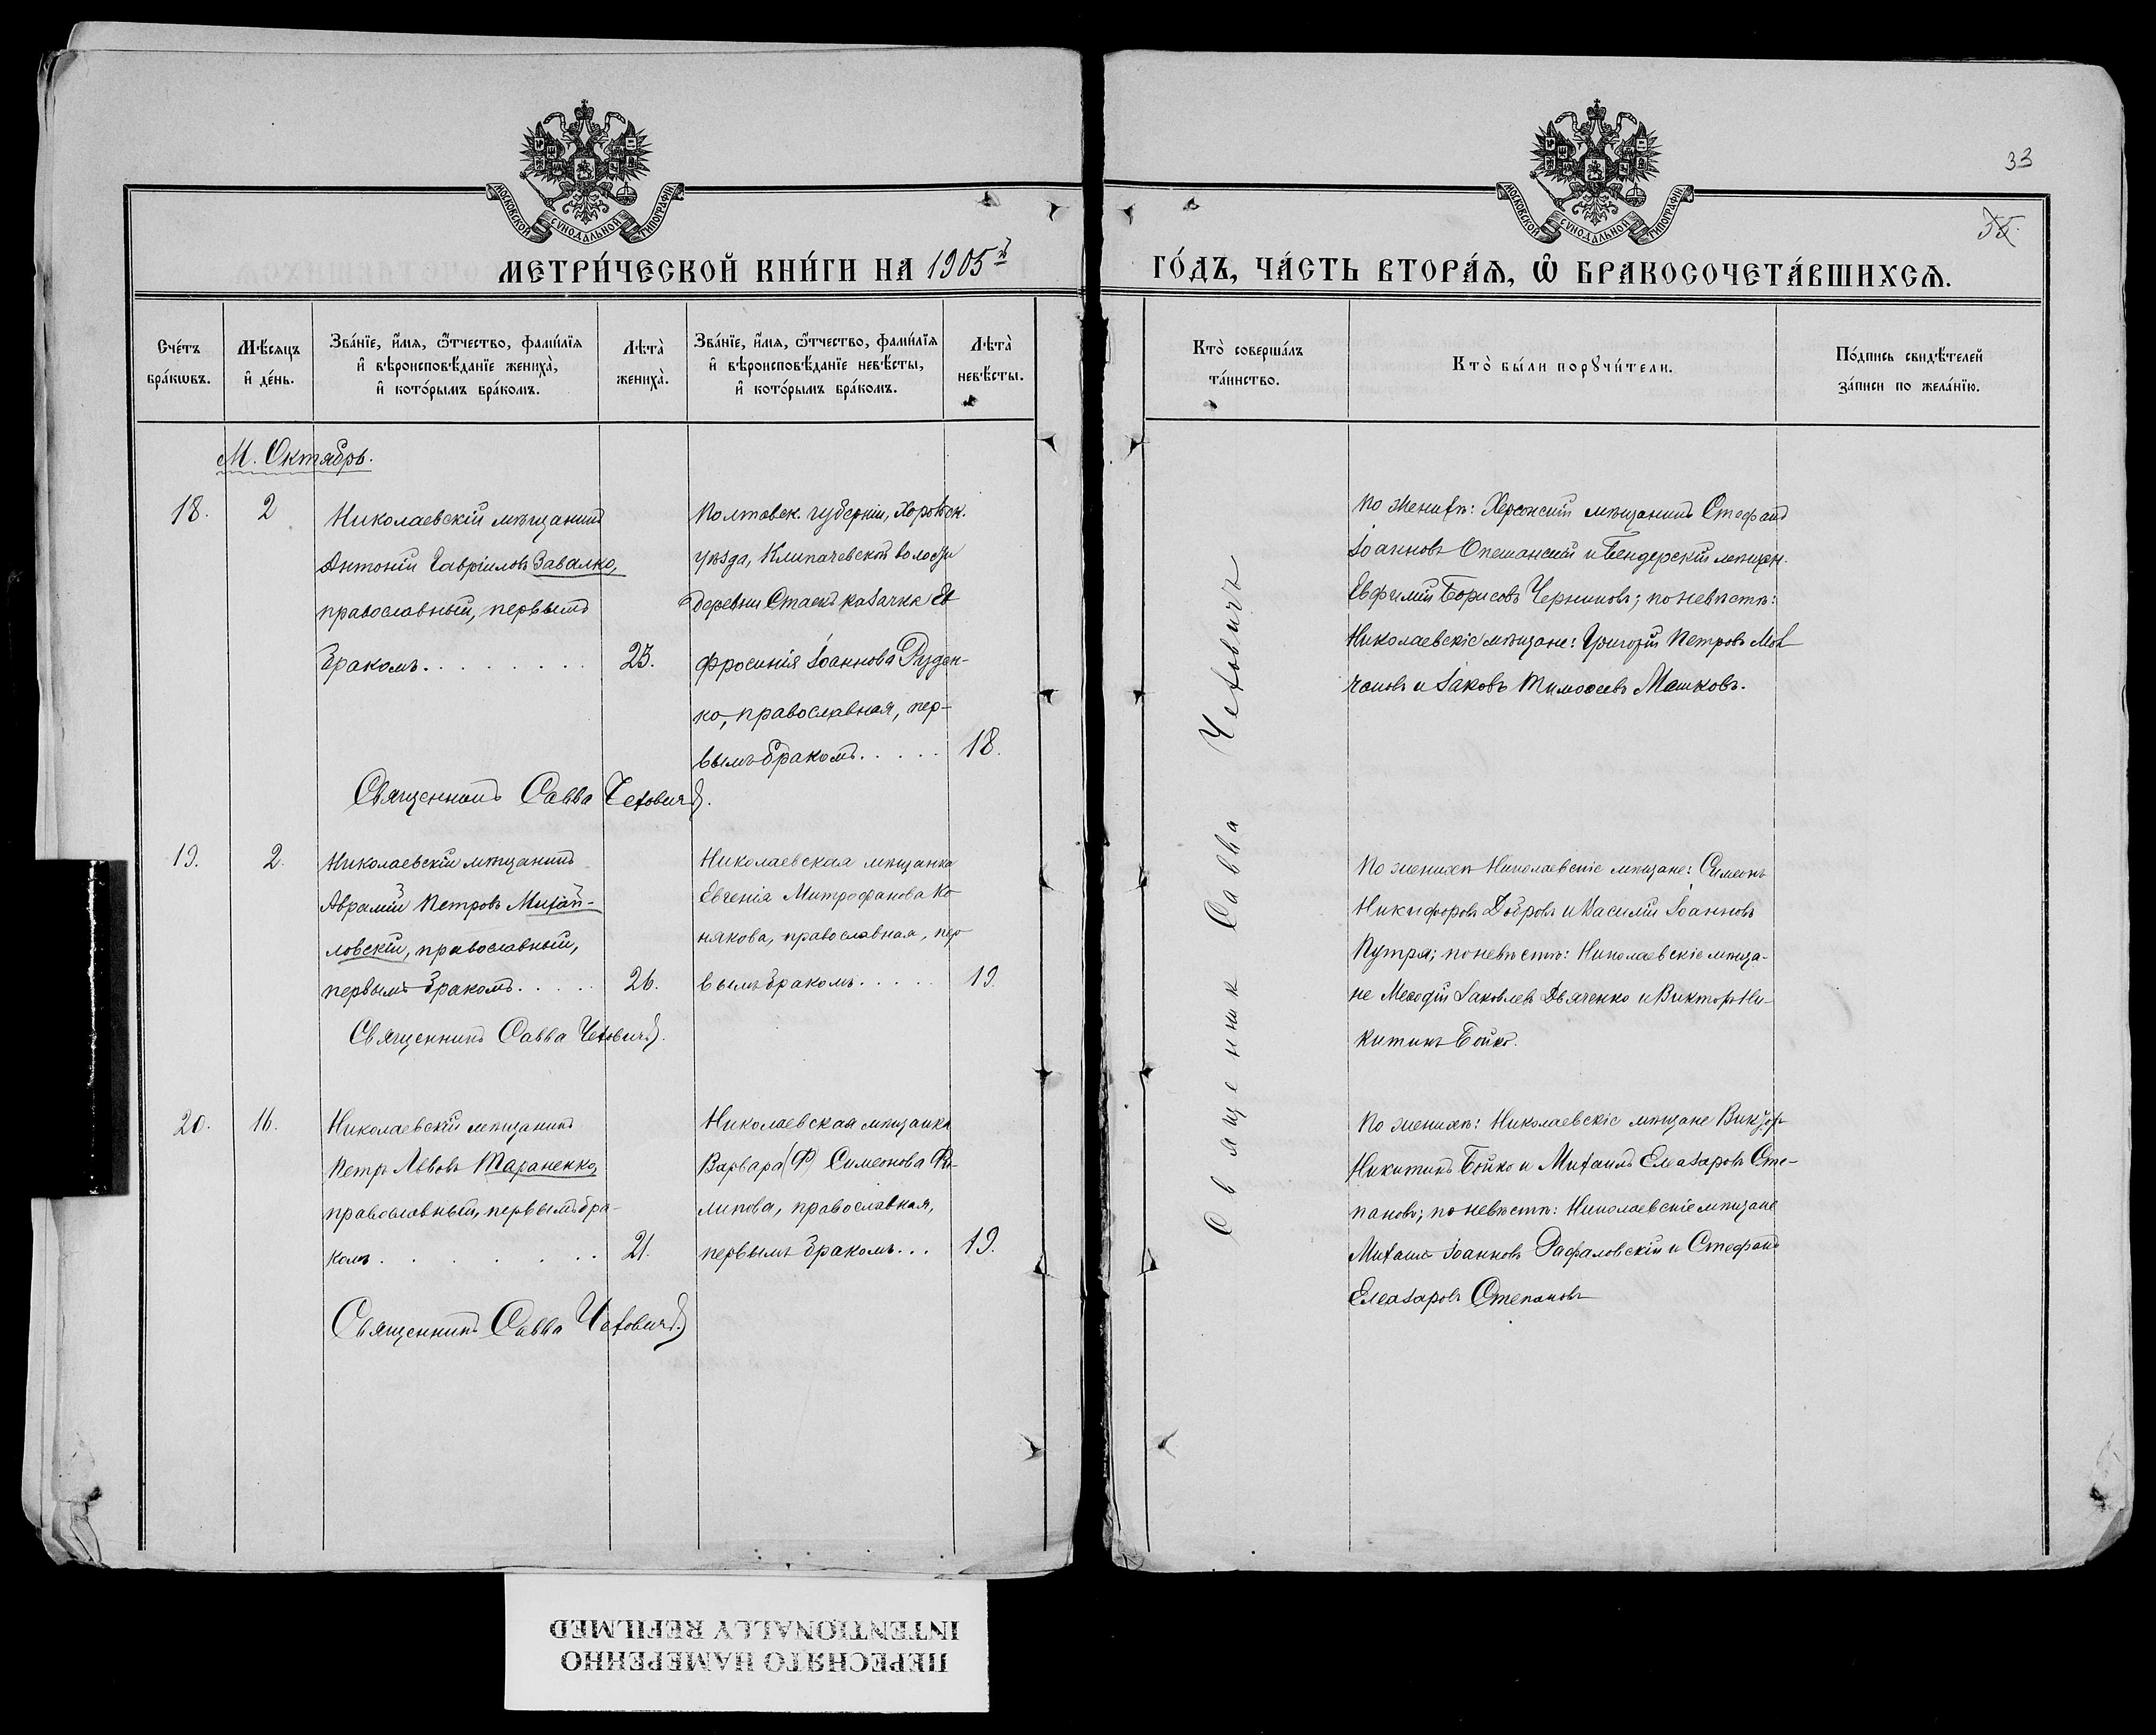 33
55.
МОСКОВСКОЙ СѴНОДАЛЬНОЙ ТИПОГРАФІИ
МОСКОВСКОЙ СѴНОДАЛЬНОЙ ТИПОГРАФІИ
МЕТРИ́ЧЕСКОЙ КНИ́ГИ НА 1905й
ГО́ДЪ, ЧА́СТЬ ВТОРА́Ѧ, Ѡ҆ БРАКОСОЧЕТА́ВШИХСѦ.
Сче́тъ
бра́кѡвъ.
Мѣ́сяцъ
и҆ де́нь.
Зва́нїе, и҆́мѧ, ѻ҆́тчество, фами́лїѧ
и҆ вѣроисповѣ́данїе жениха̀,
и҆ кото́рымъ бра́комъ.
Лѣта̀
жениха̀.
Зва́нїе, и҆́мѧ, ѻ҆́тчество, фами́лїѧ
и҆ вѣроисповѣ́данїе невѣ́сты,
и҆ кото́рымъ бра́комъ.
Лѣта̀
невѣ́сты.
Кто̀ соверша́лъ
та́инство.
Кто̀ бы́ли порꙋчи́тели.
По́дпись свидѣ́телей
за́писи по жела́нїю.
М. Октябрь.
18.
2
Николаевскій мѣщанинъ
Антоній Гавріиловъ Завалко,
православный, первымъ
бракомъ. . . . . . . . .
23.
Полтавск. губерніи, Хорольск.
уѣзда, волости
деревни казачка Ев
фросинія Іоаннова Руден-
ко, православная, пер-
вымъ бракомъ. . . . .
18.
Священникъ Савва Чеховичъ.
По женихѣ: Херсонскій мѣщанинъ Стефанъ
Іоанновъ Опешанскій и Бендерскій мѣщан.
Евфимій Борисовъ Черниковъ; по невѣстѣ:
Николаевскіе мѣщане: Григорій Петровъ Мол
чановъ и Іаковъ Тимоѳеевъ Машковъ.
19.
2.
Николаевскій мѣщанинъ
Аврамій Петровъ Михай-
ловскій, православный,
первымъ бракомъ. . . . .
26.
Николаевская мѣщанка
Евгенія Митрофанова Ко
някова, православная, пер
вымъ бракомъ. . . . .
19.
Священникъ Савва Чеховичъ.
По женихѣ Николаевскіе мѣщане: Симеонъ
Никифоровъ Добровъ и Василій Іоанновъ
Путря; по невѣстѣ: Николаевскіе мѣща-
не Меѳодій Іаковлевъ Дьяченко и Викторъ Ни-
китинъ Бойко.
20.
16.
Николаевскій мѣщанинъ
Петръ Львовъ Тараненко,
православный, первымъ бра-
комъ. . . . . . .
21.
Николаевская мѣщанка
Варвара (Ф) Симеонова Фи-
липова, православная,
первымъ бракомъ. . .
19.
Священникъ Савва Чеховичъ.
По женихѣ: Николаевскіе мѣщане Викторъ
Никитинъ Бойко и Михаилъ Елеазаровъ Сте-
пановъ; по невѣстѣ: Николаевскіе мѣщане
Михаилъ Іоанновъ Рафаловскій и Стефанъ
Елеазаровъ Степановъ
Священник Савва Чеховичъ
ПЕРЕСНЯТО НАМЕРЕННО
INTENTIONALLY REFILMED